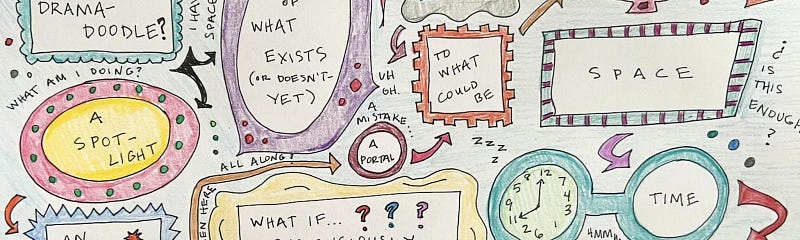 DRAMA-
DOODLE?
I HAVE
SPACE
OF
WHAT
EXISTS
(OR DOESN'T-
YET)
UH
OH.
TO
WHAT
COULD
BE
SPACE
¿
IS
THIS
ENOUGH
?
WHAT AM I DOING?
A
SPOT-
LIGHT
A
MISTAKE...
A
PORTAL
ALL ALONG?
Z Z Z
12
7
4
3
6
2
11
TIME
HMMM
WHAT IF... ? ? ?
AN